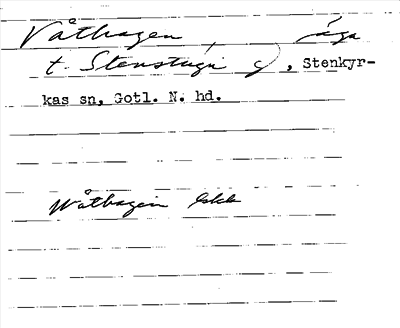 Våthagen, äga
t. Stenstugu G, Stenkyr-
kas sn, Gotl. N. hd.
Wåthagen